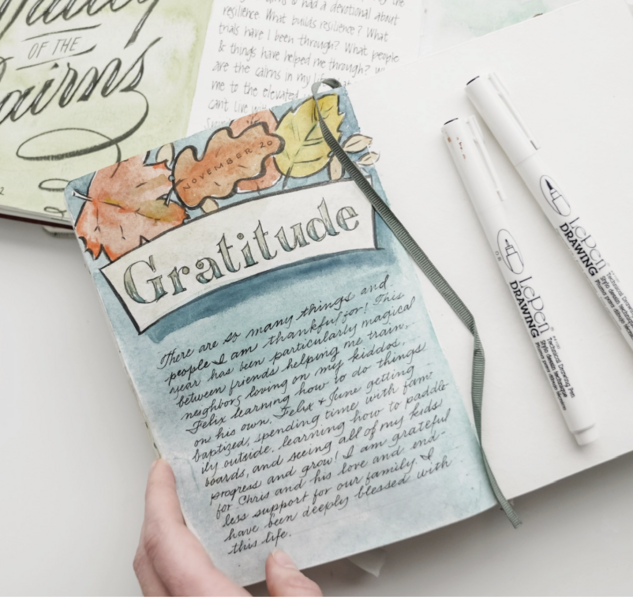 OF THE
Cairns
resilience. What builds resilience? What
trials have I been through? What people
& things have helped me through? What
are the cairns in my life
me to the elevated
can't live wi
NOVEMBER 20
Gratitude
There are so many things and
people I am thankful for! This
year has been particularly magical
between friends helping me train,
neighbors loving on my kiddos,
Felix learning how to do things
on his own, Felix & June getting
baptized, spending time with fam-
ily outside, learning how to paddle
boards, and seeing all of my kids
progress and grow! I am grateful
for Chris and his love and end-
less support for our family. I
have been deeply blessed with
this life.
LePen
DRAWING
LePen
DRAWING